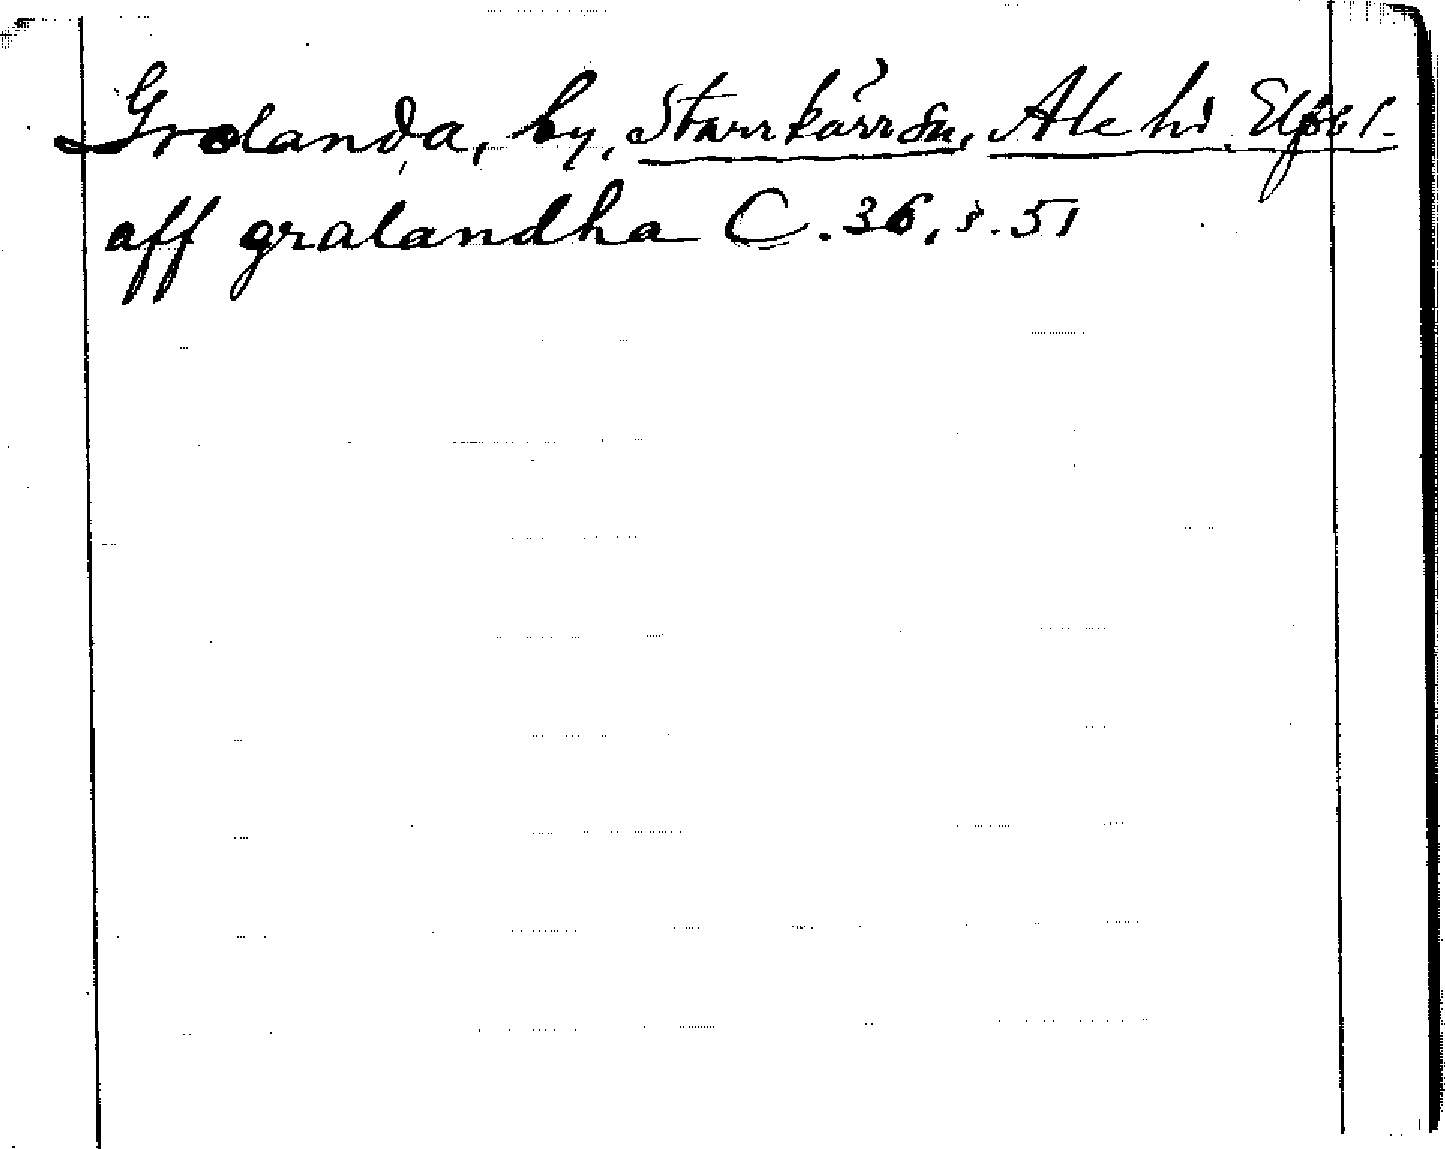 Grolanda, by, Starrkärrs sn, Ale hd. Elfsb l.
aff gralandha C. 36, s. 51